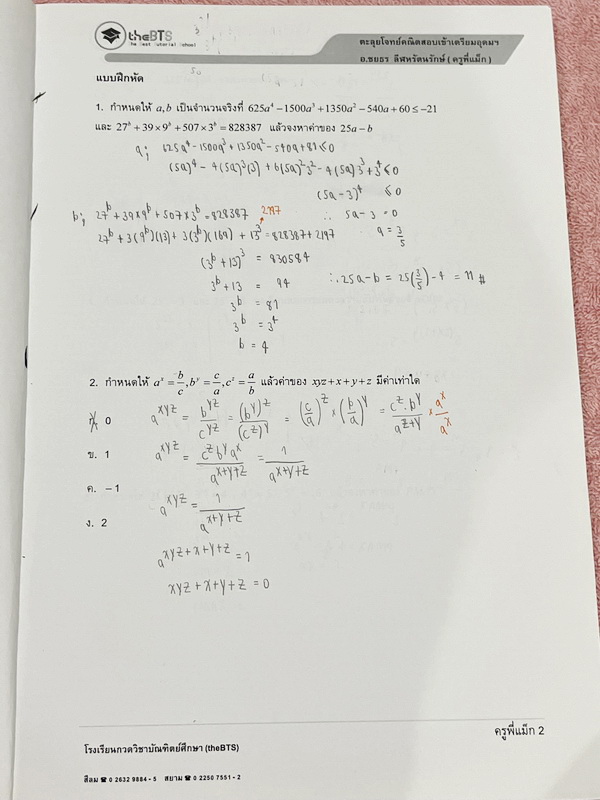 theBTS
The Best Tutorial School
ตะลุยโจทย์คณิตสอบเข้าเตรียมอุดมฯ
อ.ชยธร ลีฬหรัตนรักษ์ ( ครูพี่แม็ก )
แบบฝึกหัด
1. กำหนดให้ a,b เป็นจำนวนจริงที่ 625a⁴ −1500a³ +1350a² −540a + 60 ≤ −21
และ 27ᵇ + 39×9ᵇ + 507×3ᵇ = 828387 แล้วจงหาค่าของ 25a − b
a; 625a⁴ - 1500a³ + 1350a² - 540a + 81 ≤ 0
(5a)⁴ - 4(5a)³(3) + 6(5a)²3² - 4(5a)3³ + 3⁴ ≤ 0
(5a-3)⁴ ≤ 0
∴ 5a - 3 = 0
a = 3/5
b; 27ᵇ + 39×9ᵇ + 507×3ᵇ = 828387
2197
27ᵇ + 3(9ᵇ)(13) + 3(3ᵇ)(169) + 13³ = 828387 + 2197
(3ᵇ + 13)³ = 830584
3ᵇ + 13 = 94
∴ 25a - b = 25(3/5) - 4 = 11 #
3ᵇ = 81
3ᵇ = 3⁴
b = 4
2. กำหนดให้ aˣ = b/c, bʸ = c/a, cᶻ = a/b แล้วค่าของ xyz + x + y + z มีค่าเท่าใด
ก. 0
a^xyz = b^yz/c^yz = (b^y)^z/(c^z)^y = (c/a)^z × (b/a)^y = c^z·b^y/a^(z+y) × a^x/a^x
ข. 1
a^xyz = c^z b^y a^x/a^(x+y+z) = 1/a^(x+y+z)
ค. −1
a^xyz = 1/a^(x+y+z)
ง. 2
a^(xyz+x+y+z) = 1
xyz + x + y + z = 0
ครูพี่แม็ก 2
โรงเรียนกวดวิชาบัณฑิตย์ศึกษา (theBTS)
สีลม ☎ 0 2632 9884 - 5 สยาม ☎ 0 2250 7551 - 2